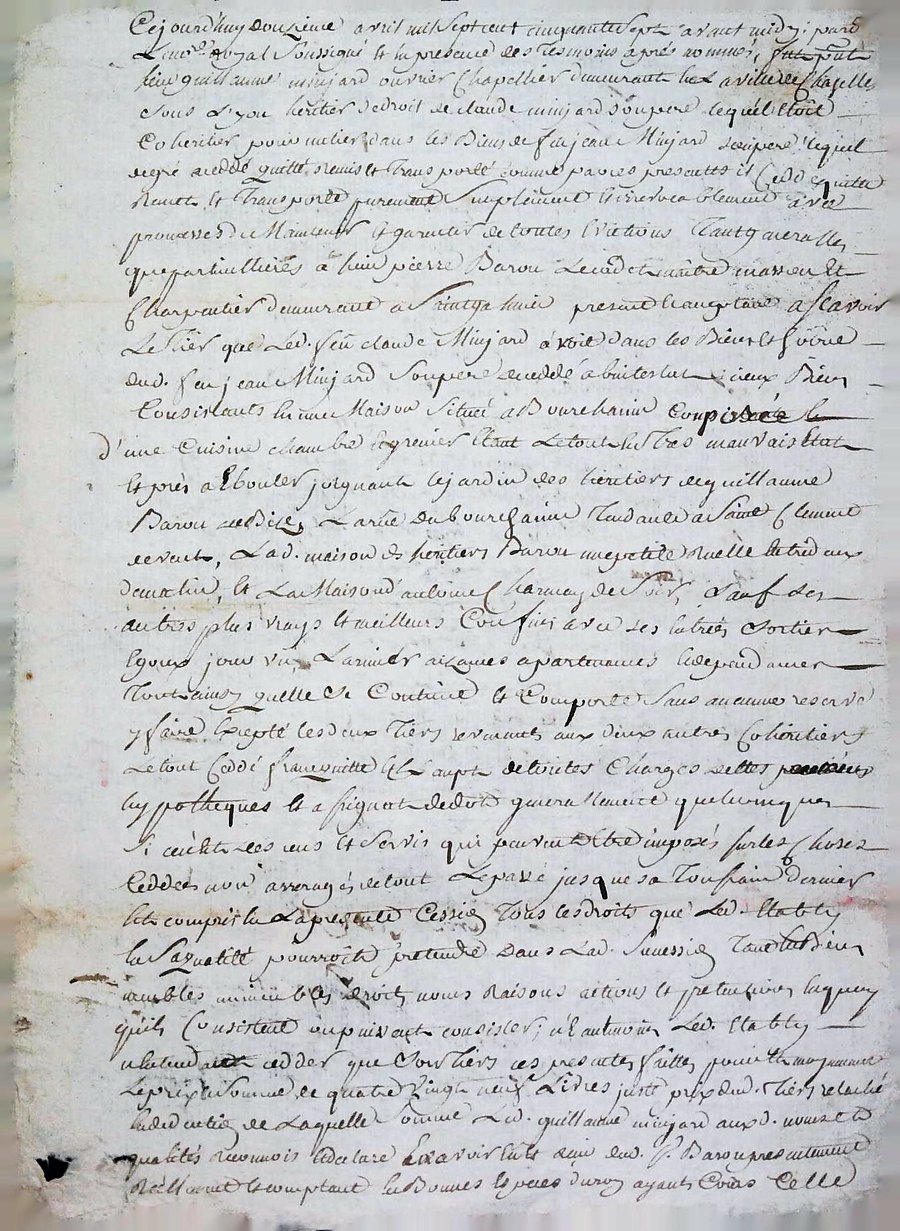 Cejourd'huy douzieme avril mil sept cent cinquante sept avant midy; pard
Le no.re Royal Soussigné et en presence des tesmoins aprés nommés,
sieur guillaume minjard ouvrier Chapellier demeurant en la ville de Chazelle
sous Lyon heritier de droit de claude minjard son pere lequel Etoit
Coheritier pour un tier dans les Biens de feu jean Minjard son pere lequel
de gré a ceddé quitté Remis et transporté comme par ces presentes il Cedde quitte
Remet et transporte purement Simplement et irrevocablement avec
promesses de Maintenir et garantir de toutes Evictions Tant generalles
que particullieres à sieur pierre Barou Le cadet maître masson et
Charpentier demeurant a Saint galmier present et acceptant a Scavoir
Le tier que Led. feu claude Minjard avoit dans les Biens et hoirie
dud. feu jean Minjard Son pere deceddé abintestat; iceux Biens
Consistants en une Maison Situé a Bourchanin Composée
d'une Cuisine chambre et grenier Etant Le tout en tres mauvais Etat
Et prés a Ebouler joignant le jardin des heritiers de guillaume
Barou de Bize, La rüe du bourchanin Tendante a Saint Clement
de vent, Lad. maison des heritiers Barou une petite Ruelle entre deux
de matin, Et La Maison d'antoine Charmay de Soir, Sauf ses
autres plus vrays et meilleurs Confins avec ses Entrées Sorties
Egoux jours vües Larmiers aizances apartenances et dependances
Tout ainsy quelle Se Contient et Comporte Sans aucune reserve
y faire Excepté les deux Tiers revenants aux deux autres Coheritiers
Le tout Ceddé franc quitte et Exempt de toutes Charges dettes
hypotheques et assignat de dot generallement quelconques
Si ce n'est des cens et Servis qui peuvent Etre imposés sur les Choses
Ceddées avec arrerages de tout Le passé jusques a Toussaint dernier
Est compris en La presente Cession Tous les droits que Led. Etably
En Sa qualité pourroit pretendre dans Lad. Succession Tant En Biens
meubles immeubles droits noms Raisons actions et pretentions En quoy
qu'ils Consistent ou puissent consister; N'Eantmoins Led. Etably
n'entendant cedder que Son tiers ces presentes faittes pour et moyennant
Le prix et Somme de quatre Vingt neuf Livres juste prix dud. tiers relaché
En deduction de Laquelle Somme Led. guillaume minjard auxd. noms et
qualités Reconnois Et declare Avoir Eu et Reçu dud. S.r Barou presentement
Reellement et comptant En Bonnes Especes du roy ayants Cours Celle